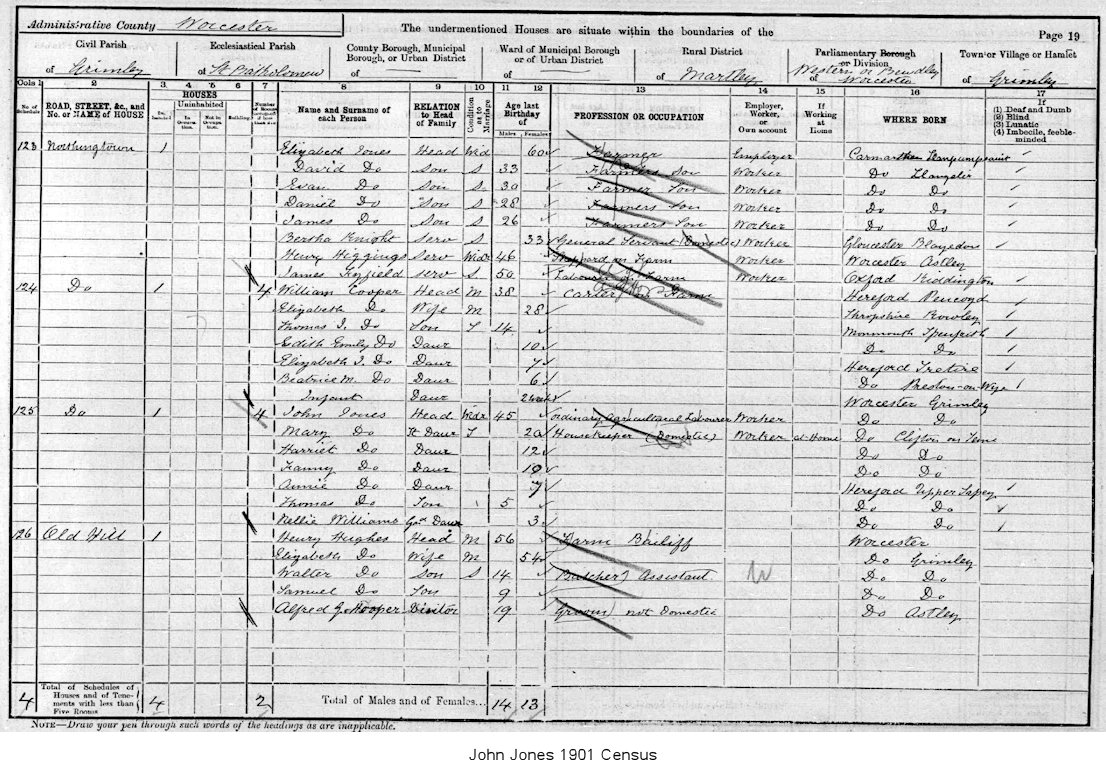 Administrative County Worcester
The undermentioned Houses are situate within the boundaries of the
Page 19
Civil Parish of Grimley
Ecclesiastical Parish of St Batholomew
County Borough, Municipal Borough, or Urban District of
Ward of Municipal Borough or of Urban District of
Rural District of Martley
Parliamentary Borough or Division of Western or Bewdley Worcester
Town or Village or Hamlet of Grimley
Cols 1 2 3 4 5 6 7 8 9 10 11 12 13 14 15 16 17
No. of Schedule
ROAD, STREET, &c., and No. or NAME of HOUSE
HOUSES
Inhabited
Uninhabited
In Occupation.
Not in Occupation.
Building.
Number of Rooms occupied if less than five
Name and Surname of each Person
RELATION to Head of Family
Condition as to Marriage
Age last Birthday of
Males Females
PROFESSION OR OCCUPATION
Employer, Worker, or Own account
If Working at Home
WHERE BORN
If (1) Deaf and Dumb (2) Blind (3) Lunatic (4) Imbecile, feeble-minded
123 Northingtown 1 Elizabeth Jones Head Wid 60 Farmer Employer
David Do Son S 33 Farmers Son Worker Do
Evan Do Son S 30 Farmer Son Worker Do Do
Daniel Do Son S 28 Farmers Son Worker Do Do
James Do Son S 26 Farmers Son Worker Do Do
Bertha Knight Serv S 33 General Servant (Domestic) Worker Gloucester
Henry Higgings Serv Widr 46 on Farm Worker Worcester Astley
James Serv S 50 Labourer on Farm Worker Oxford Kiddington
124 Do 1 4 William Cooper Head M 38 Carter on Farm Hereford Pencoyd
Elizabeth Do Wife M 28 Shropshire Rowley
Thomas J. Do Son S 14 Monmouth
Edith Emily Do Daur 10 Do Do
Elizabeth J. Do Daur 7 Hereford Tretire
Beatrice M. Do Daur 6 Do Preston-on-Wye
Infant Daur Worcester Grimley
125 Do 1 4 John Jones Head Widr 45 ordinary Agricultural Labourer Worker Do Do
Mary Do Daur S 20 Housekeeper (Domestic) Worker at Home Do Clifton on Teme
Harriet Do Daur 12 Do Do
Fanny Do Daur 10 Do Do
Annie Do Daur 7 Hereford Upper Sapey
Thomas Do Son 5 Do Do
Nellie Williams Gd Daur 3 Do Do
126 Old Hill 1 Henry Hughes Head M 56 Farm Bailiff Worcester
Elizabeth Do Wife M 54 Do Grimley
Walter Do Son S 14 Butchers Assistant W Do Do
Samuel Do Son 9 Do Do
Alfred G. Hooper Visitor 19 Groom not Domestic Do Astley
4 Total of Schedules of Houses and of Tenements with less than Five Rooms 4 2 Total of Males and of Females... 14 13
NOTE—Draw your pen through such words of the headings as are inapplicable.
John Jones 1901 Census